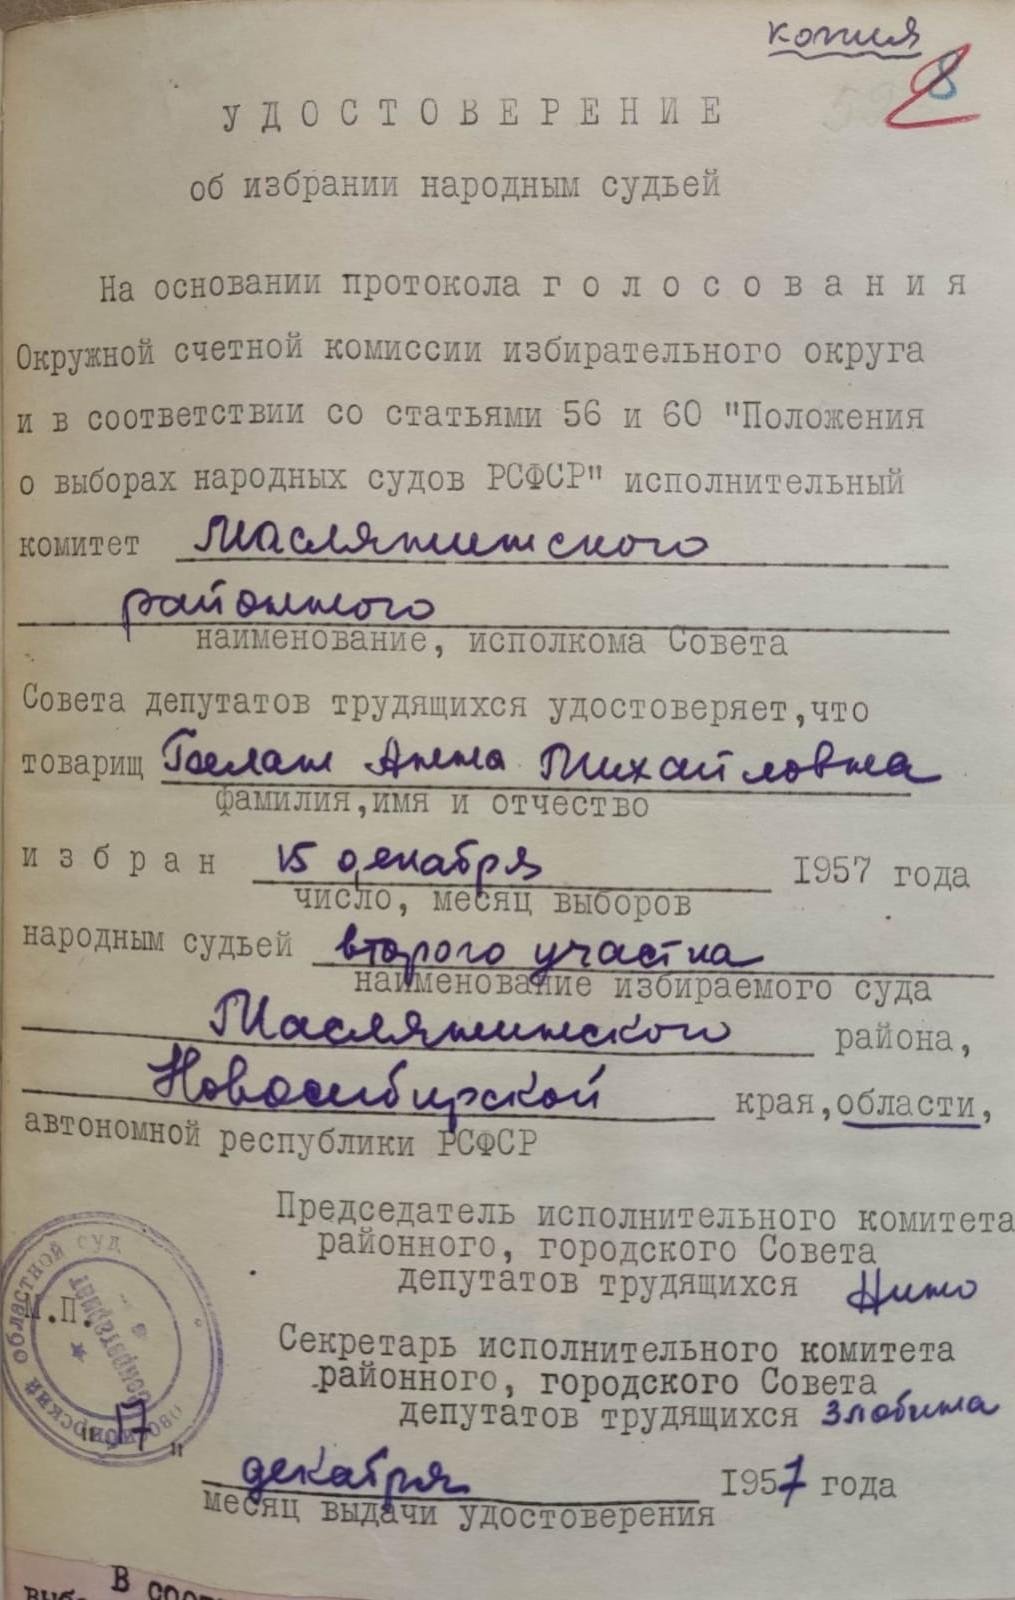 копия
8
УДОСТОВЕРЕНИЕ
об избрании народным судьей
На основании протокола голосования
Окружной счетной комиссии избирательного округа
и в соответствии со статьями 56 и 60 "Положения
о выборах народных судов РСФСР" исполнительный
комитет Маслянинского
районного
наименование, исполкома Совета
Совета депутатов трудящихся удостоверяет, что
товарищ Белан Анна Михайловна
фамилия, имя и отчество
избран 15 декабря 1957 года
число, месяц выборов
народным судьей второго участка
наименование избираемого суда
Маслянинского района,
Новосибирской края, области,
автономной республики РСФСР
Председатель исполнительного комитета
районного, городского Совета
депутатов трудящихся
М.П.
Новосибирский областной суд
Секретариат
Секретарь исполнительного комитета
районного, городского Совета
депутатов трудящихся Злобина
"17"
декабря 1957 года
месяц выдачи удостоверения
В